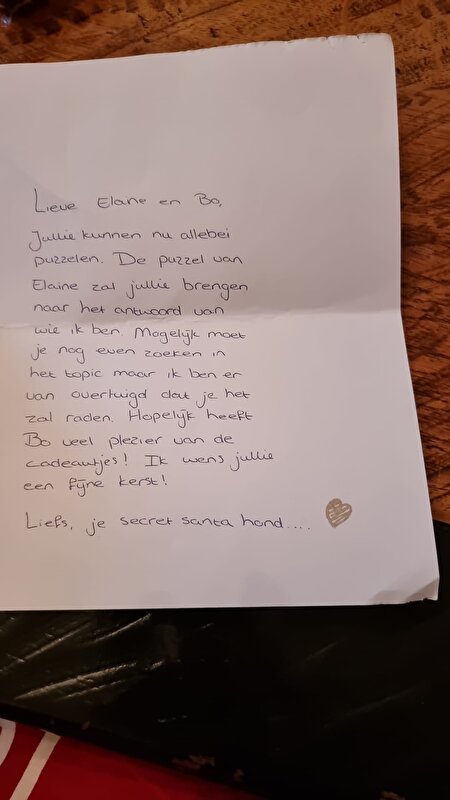 Lieve Elaine en Bo,
Jullie kunnen nu allebei
puzzelen. De puzzel van
Elaine zal jullie brengen
naar het antwoord van
wie ik ben. Mogelijk moet
je nog even zoeken in
het topic maar ik ben er
van overtuigd dat je het
zal raden. Hopelijk heeft
Bo veel plezier van de
cadeautjes! Ik wens jullie
een fijne kerst!
Liefs, je secret santa hond....